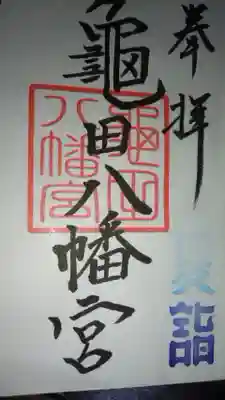 奉拝
夏詣
龜田八幡宮
八幡宮
龜田